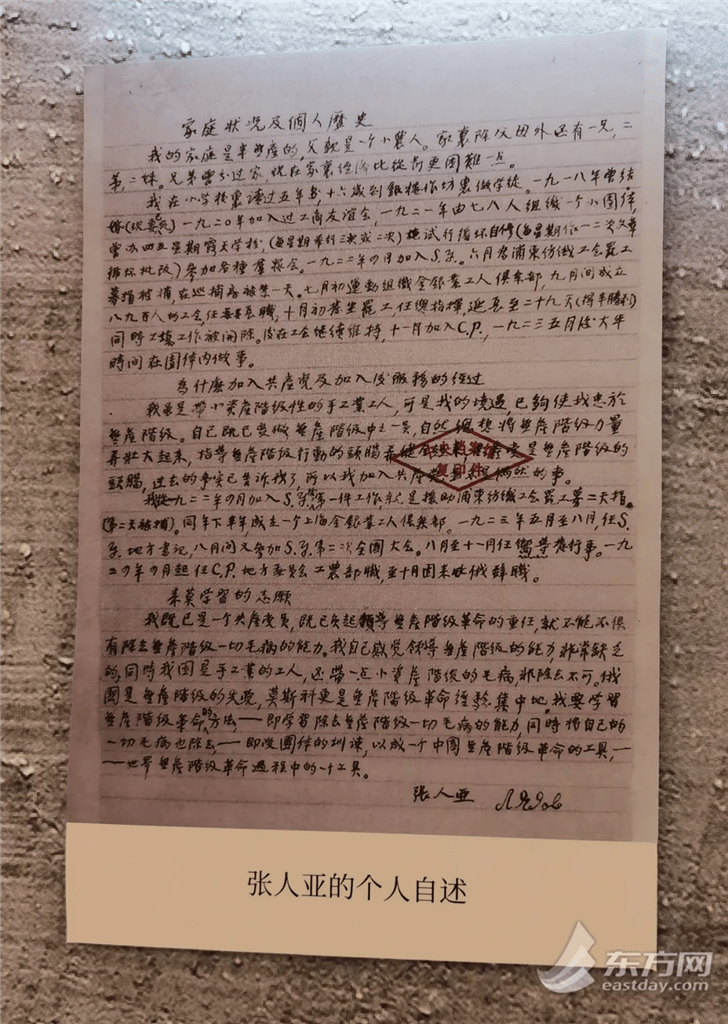 家庭状况及個人歷史
我的家庭是半無產的,父親是一个小農人。家裏除父母外还有一兄,二
弟,二妹。兄弟曾分过家,現在家裏经济比從前更困難一点。
我在小学校裏读过五年书,十六歲到銀樓作坊裏做学徒。一九一八年曾结
婚 一九二〇年加入过工商友谊会,一九二一年由七八人组織一个小团体,
曾办四五星期露天学校,(每星期举行三次或二次)試行循环自修(每星期作一二次文章
循环批改)参加各種羣衆会。一九二二年四月加入S.Y.。六月为浦東纺織工会罷工
募捐被捕,在巡捕房被禁一天。七月初運動组織金銀業工人俱樂部,九月间成立
八九百人的工会,任委員長職,十月初發生罷工,任總指揮,延長至二十九天(得半勝利)
同時工場工作被開除。後在工会继續维持,十一月加入C.P.,一九二三五月後大半
時间在团体内做事。
為什麽加入共產党及加入後服務的经过
我雖是帶小資產階级性的手工業工人,可是我的境遇,已夠使我忠於
無產階级。自己既已要做無產階级中之一員,自然須想將無產階级力量
弄壯大起來,指導無產階级行動的頭腦弄健全 是無產階级的
頭腦,过去的事实已告訴我了,所以我加入共產党 偶然的事。
我從一九二二年四月加入S.Y.第一件工作,就是援助浦東纺織工会罷工募二天捐
(第二天被捕)。同年下半年,成立一个上海金銀業工人俱樂部。一九二三年五月至八月,任S.
Y.地方書记,八月间又參加S.Y.第二次全國大会。八月至十一月任嚮導發行事。一九
二四年四月起任C.P.地方委員会工農部職,至十月因來此俄辭職。
來莫学習的志願
我既已是一个共產党員,既已负起領導無產階级革命的重任,就不能不俱
有除去無產階级一切毛病的能力。我自己感觉領導無產階级的能力,非常缺乏
的,同時我因是手工業的工人,还帶一点小資產階级的毛病,非除去不可。俄
國是無產階级的先晚,莫斯科更是無產階级革命经驗集中地。我要学習
無產階级革命的方法,——即学習除去無產階级一切毛病的能力,同時将自己的
一切毛病也除去,——即受团体的训读,以成一个中國無產階级革命的工具,——
——世界無產階级革命过程中的一个工具。
张人亚
中央档案馆
复印件
张人亚的个人自述
东方网
eastday.com